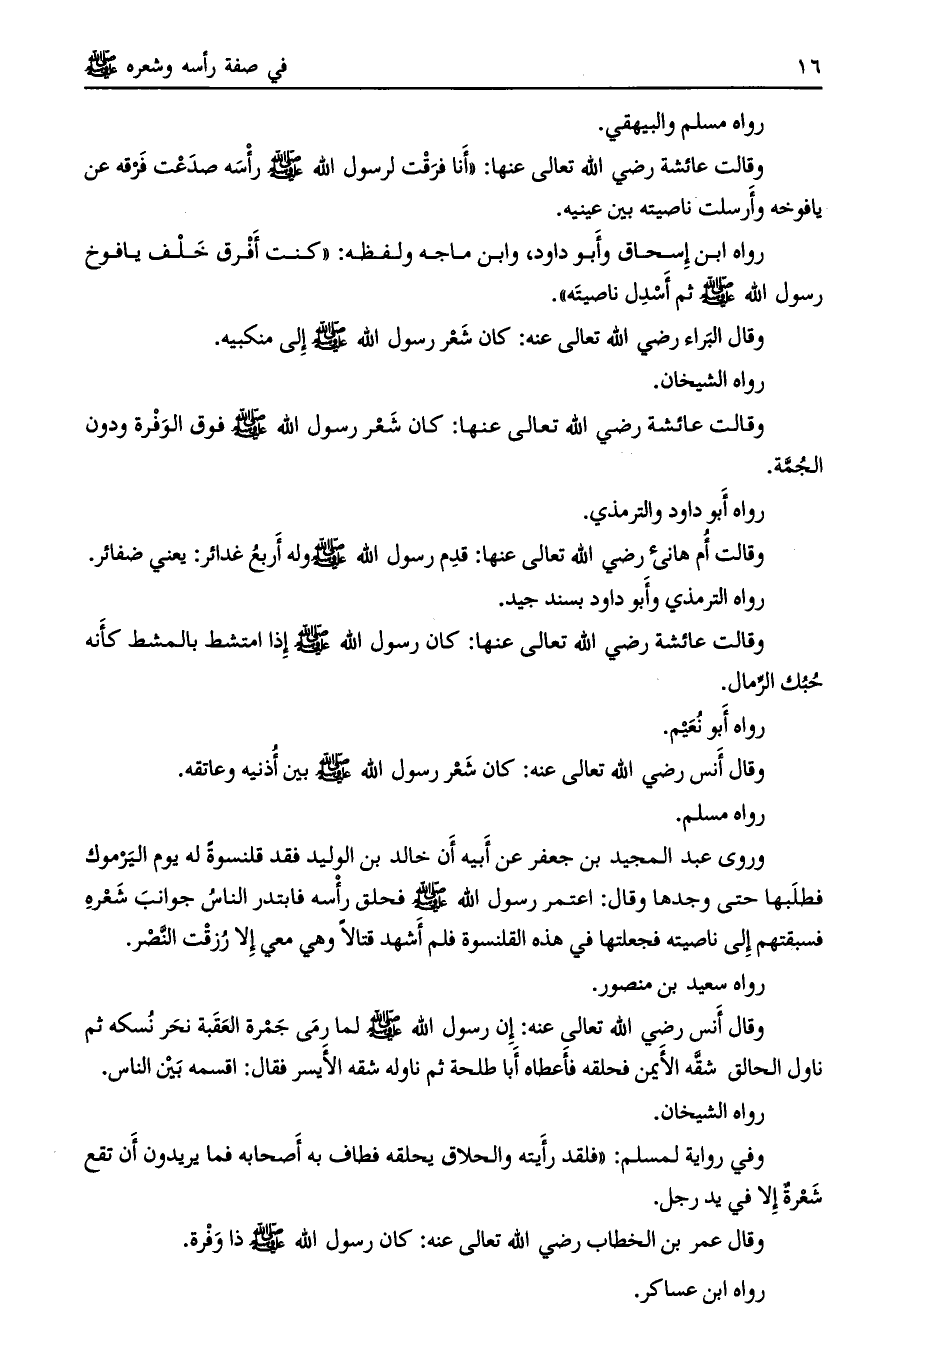 ١٦ في صفة رأسه وشعره ﷺ
رواه مسلم والبيهقي.
وقالت عائشة رضي الله تعالى عنها: «أَنا فرَقْت لرسول الله ﷺ رأْسَه صدَعْت فَرْقه عن
يافوخه وأَرسلت ناصيته بين عينيه.
رواه ابن إِسحاق وأَبو داود، وابن ماجه ولفظه: «كنت أَفْرق خَلْف يافوخ
رسول الله ﷺ ثم أَسْدِل ناصيتَه».
وقال البَراء رضي الله تعالى عنه: كان شَعْر رسول الله ﷺ إِلى منكبيه.
رواه الشيخان.
وقالت عائشة رضي الله تعالى عنها: كان شَعْر رسول الله ﷺ فوق الوَفْرة ودون
الجُمَّة.
رواه أَبو داود والترمذي.
وقالت أُم هانئ رضي الله تعالى عنها: قدِم رسول الله ﷺ وله أَربعُ غدائر: يعني ضفائر.
رواه الترمذي وأَبو داود بسند جيد.
وقالت عائشة رضي الله تعالى عنها: كان رسول الله ﷺ إِذا امتشط بالمشط كأَنه
حُبُك الرِّمال.
رواه أَبو نُعَيْم.
وقال أَنس رضي الله تعالى عنه: كان شَعْر رسول الله ﷺ بين أُذنيه وعاتقه.
رواه مسلم.
وروى عبد المجيد بن جعفر عن أَبيه أَن خالد بن الوليد فقد قلنسوةً له يوم اليَرْموك
فطلَبها حتى وجدها وقال: اعتمر رسول الله ﷺ فحلق رأْسه فابتدر الناسُ جوانبَ شَعْرهِ
فسبقتهم إِلى ناصيته فجعلتها في هذه القلنسوة فلم أَشهد قتالاً وهي معي إِلا رُزقْت النَّصْر.
رواه سعيد بن منصور.
وقال أَنس رضي الله تعالى عنه: إِن رسول الله ﷺ لما رمَى جَمْرة العَقَبة نحَر نُسكه ثم
ناول الحالق شقَّه الأَيمن فحلقه فأَعطاه أَبا طلحة ثم ناوله شقه الأَيسر فقال: اقسمه بَيْن الناس.
رواه الشيخان.
وفي رواية لمسلم: «فلقد رأَيته والحلاق يحلقه فطاف به أَصحابه فما يريدون أَن تقع
شَعْرةٌ إِلا في يد رجل.
وقال عمر بن الخطاب رضي الله تعالى عنه: كان رسول الله ﷺ ذا وَفْرة.
رواه ابن عساكر.